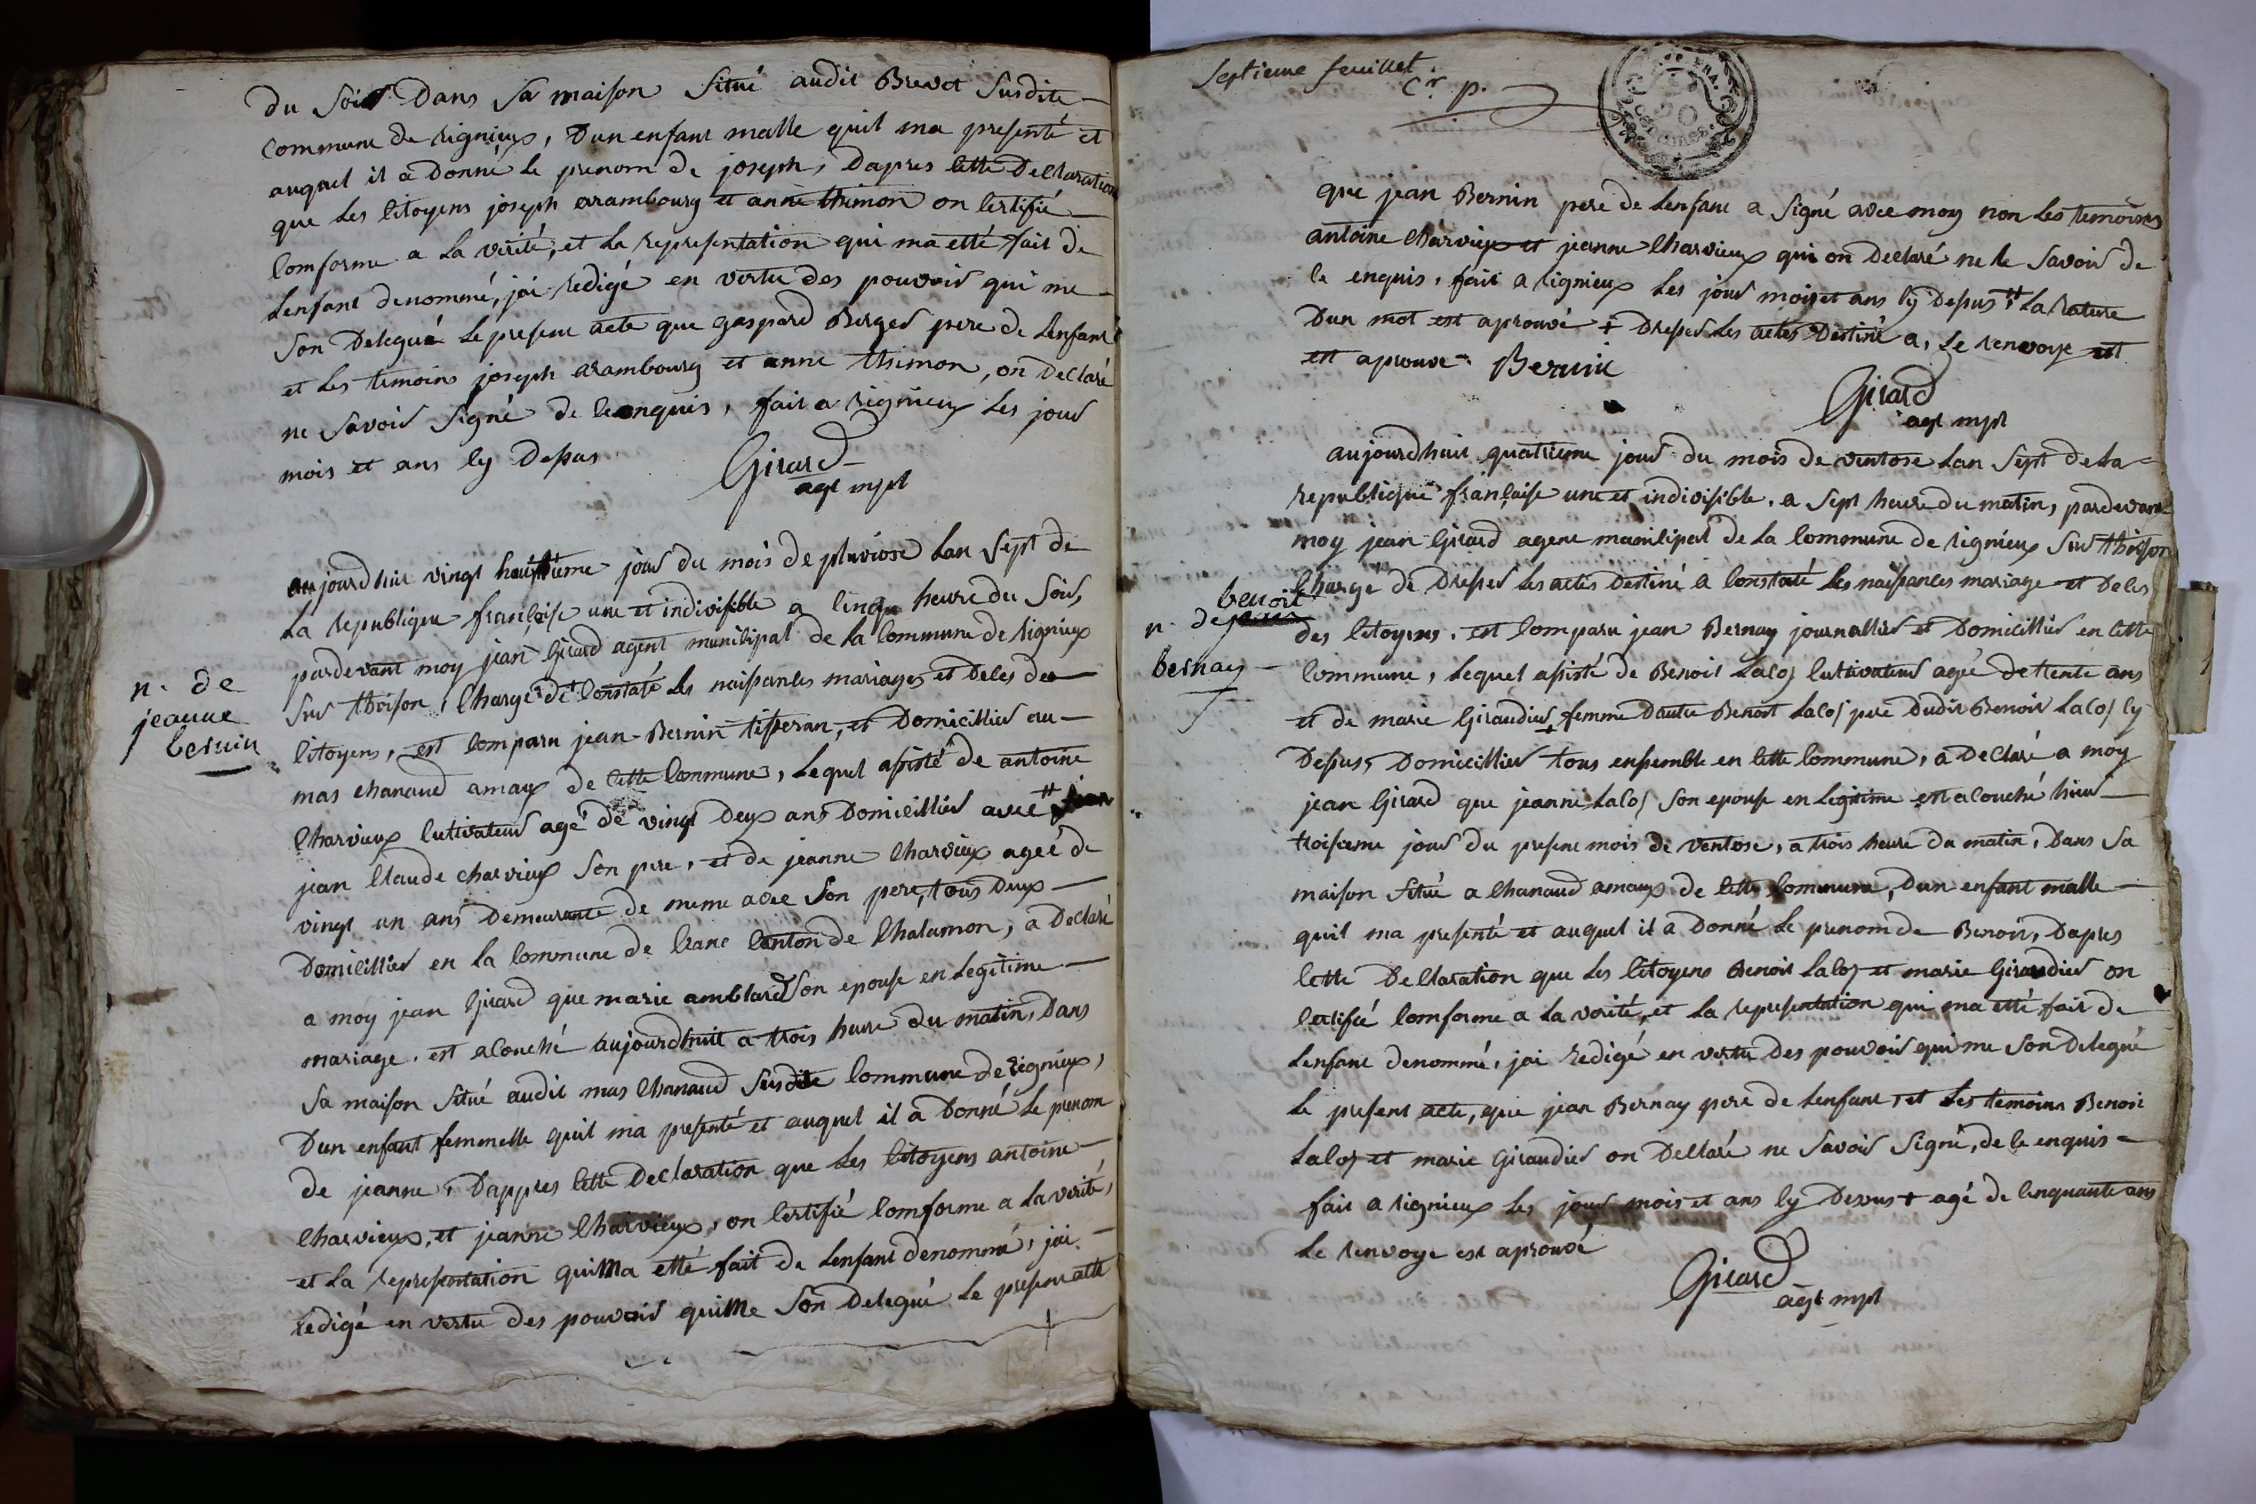 du Soir Dans Sa maison Situé audit Brevet Susdite
commune de rignieux, Dun enfant malle quil ma presenté et
auquel il a Donné le prenom de joseph, Dapres cette Declaration
que Les Citoyens joseph arambourg et anne thimon on Certifié
Comforme a La verité, et La representation qui ma etté fait de
Lenfant denommé, jai redigé en vertu des pouvoir qui me
Son Delegué Le present acte que gaspard Berger pere de Lenfant
et Les temoins joseph arambourg et anne thimon, on Declaré
ne Savoir Signé de ce enquis, fait a rignieux Les jour
mois et ans Cy Dessus
Girard
agt mpl
n. de
jeanne
bernin
aujourdhui vingt huitieme jour du mois de pluviose Lan Sept de
La republique francoise une et indivisible a Cinq heure du Soir,
pardevant moy jean Girard agent municipal de La Commune de rignieux
Sur thoison, Chargé de Constaté Les naissances mariages et Deces des
Citoyens, est Comparu jean Bernin tisseran, et Domicillier au
mas chanaud amaux de Cette Commune, Lequel assisté de antoine
Charvieux Cutivateur agé de vingt Deux ans Domicillier avec #
jean Claude charvieux Son pere, et de jeanne Charvieux ageé de
vingt un ans Demeurante de meme avec Son pere, tous Deux
Domicillier en La Commune de Crane Canton de Chalamon, a Declaré
a moy jean Girard que marie amblard Son epouse en Legitime
mariage, est acouché aujourdhuit a trois heure du matin, Dans
Sa maison Situé audit mas Chanaud Susdite Commune de rignieux,
Dun enfant femmelle quil ma presenté et auquel il a Donné Le prenom
de jeanne, Dappres Cette Declaration que Les Citoyens antoine
Charvieux, et jeanne Charvieux, on Certifié Comforme a La verité,
et La representation qui Ma etté fait de Lenfant denommé, jai
redigé en vertu des pouvoir qui Me Son Delegué Le present acte
Septieme feuillet.
Cr. p.
que jean Bernin pere de Lenfant a Signé avec moy non Les temoins
antoine Charvieux et jeanne Charvieux qui on Declaré ne le Savoir de
Ce enquis, fait a rignieux Les jour mois et ans Cy Dessus # La rature
Dun mot est aprouvé + Dresser Les actes Destiné a, Le renvoye est
est aprouve Bernin
Girard
agt mpl
benoit
n. de
bernay
aujourdhui quatrieme jour du mois de ventose Lan Sept de La
republique francaise une et indivisible, a Sept heure du matin, pardevant
moy jean Girard agent municipal de La Commune de rignieux Sur thoison
Chargé de Dresser Les actes Destiné a Constaté Les naissances mariage et Deces
des Citoyens, est Comparu jean Bernay journallier et Domicillier en Cette
Commune, Lequel assisté de Benoit Lacoj Cutivateur agé de trente ans
et de marie Giraudier + femme Dautre Benoit Lacoj pere Dudit Benoit Lacoj Cy
Dessus, Domicillier tous ensemble en Cette Commune, a Declaré a moy
jean Girard que jeanne Lacoj Son epouse en Legitime est acouché hier
troisieme jour du present mois de ventose, a trois heure du matin, Dans Sa
maison Situé a Chanaud amaux de Cette Commune, Dun enfant malle
quil ma presenté et auquel il a Donné Le prenom de Benoit, Dapres
Cette Declaration que Les Citoyens Benoit Lacoj et marie Giraudier on
Certifié Comforme a La verité, et La representation qui ma etté fait de
Lenfant denommé, jai redigé en vertu Des pouvoir qui me Son Delegué
Le present acte, que jean Bernay pere de Lenfant, et Les temoins Benoit
Lacoj et marie Giraudier on Declaré ne Savoir Signé, de Ce enquis
fait a rignieux Les jour mois et ans Cy Desvus + agé de Cinquante ans
Le renvoye est aprouvé
Girard
agt mpl